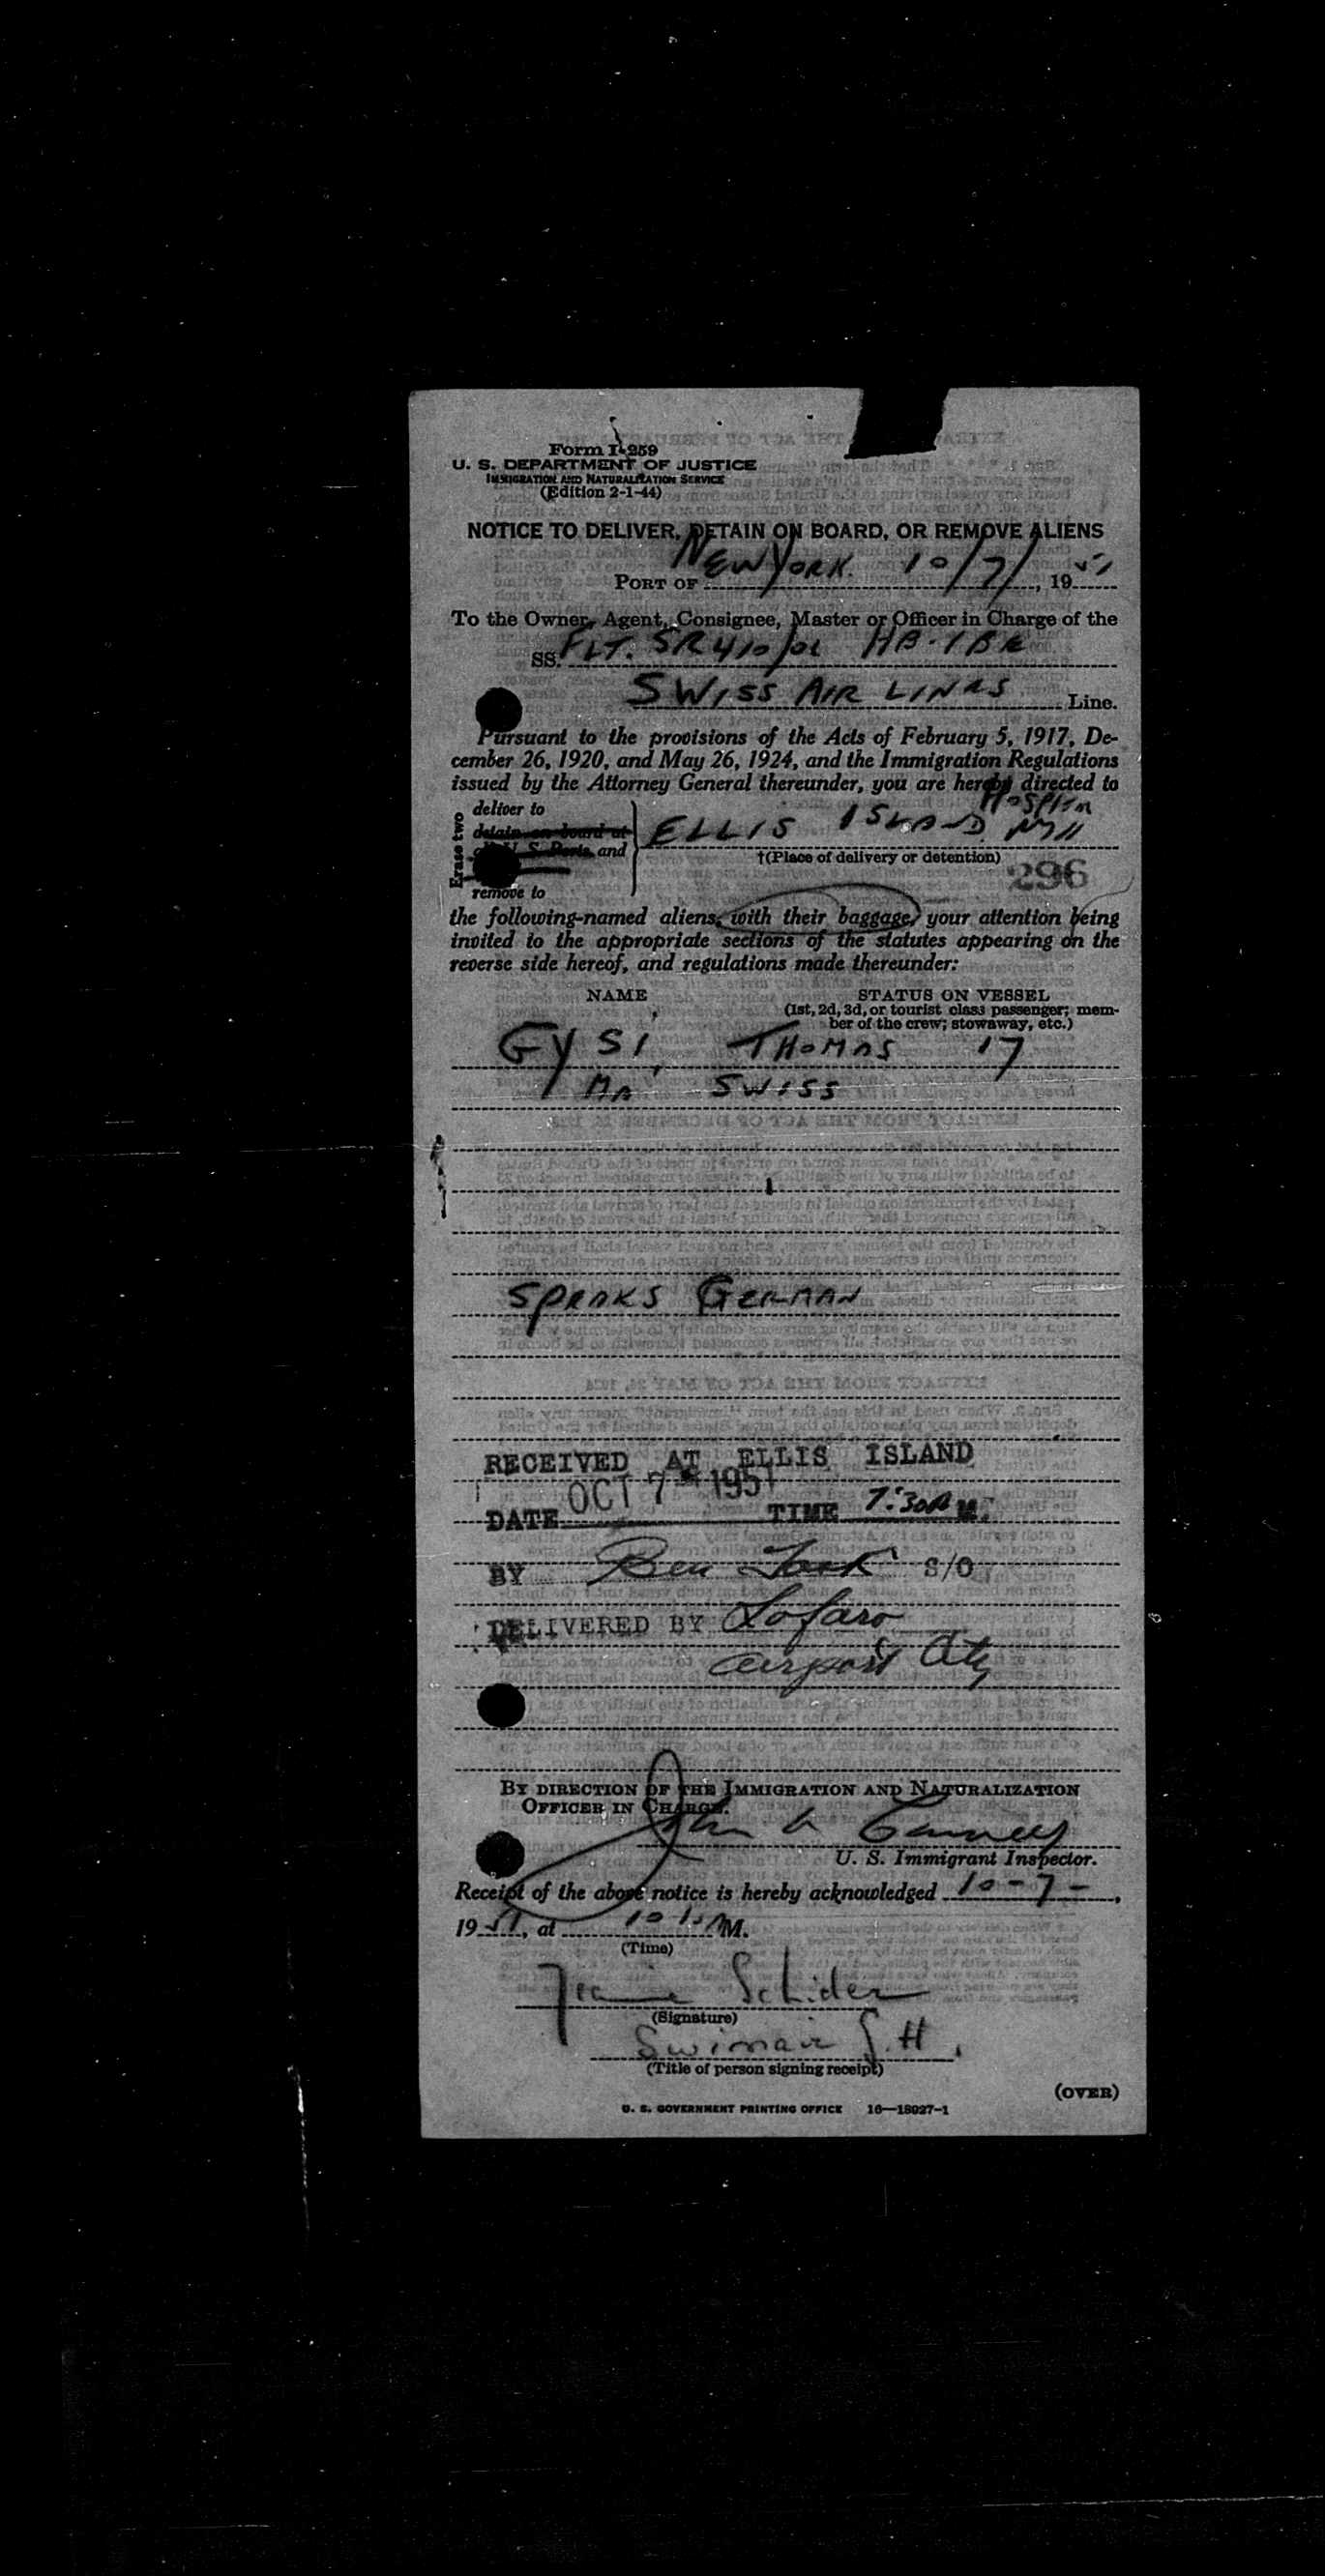 Form I-259
U. S. DEPARTMENT OF JUSTICE
IMMIGRATION AND NATURALIZATION SERVICE
(Edition 2-1-44)
NOTICE TO DELIVER, DETAIN ON BOARD, OR REMOVE ALIENS
PORT OF NEW YORK 10/7/, 1951
To the Owner, Agent, Consignee, Master or Officer in Charge of the
SS. FLT. SR 410/06 HB-IBE
SWISS AIR LINES Line.
Pursuant to the provisions of the Acts of February 5, 1917, De-
cember 26, 1920, and May 26, 1924, and the Immigration Regulations
issued by the Attorney General thereunder, you are hereby directed to
Erase two
deliver to
detain on board at
all U. S. Ports, and
remove to
ELLIS ISLAND
†(Place of delivery or detention)
296
the following-named aliens, with their baggage, your attention being
invited to the appropriate sections of the statutes appearing on the
reverse side hereof, and regulations made thereunder:
NAME STATUS ON VESSEL
(1st, 2d, 3d, or tourist class passenger; mem-
ber of the crew; stowaway, etc.)
GYSI, THOMAS 17
MA SWISS
SPEAKS GERMAN
RECEIVED AT ELLIS ISLAND
DATE OCT 7 - 1951 TIME 7:30 A M.
BY Ben S/O
DELIVERED BY Lofaro
airport
BY DIRECTION OF THE IMMIGRATION AND NATURALIZATION
OFFICER IN CHARGE.
John
U. S. Immigrant Inspector.
Receipt of the above notice is hereby acknowledged 10-7-,
1951, at M.
(Time)
(Signature)
Swissair
(Title of person signing receipt)
(OVER)
U. S. GOVERNMENT PRINTING OFFICE 16—18027-1